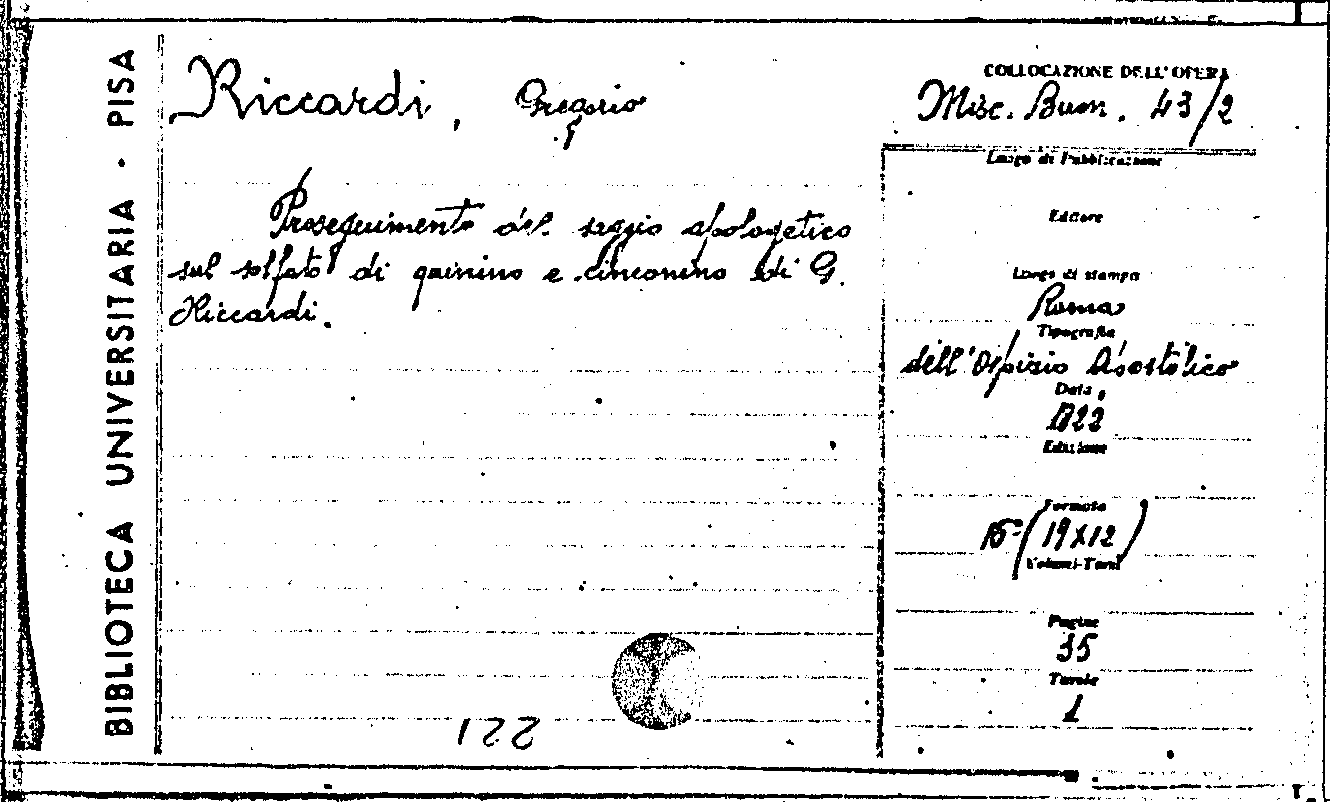 BIBLIOTECA UNIVERSITARIA · PISA
Riccardi, Gregorio
Proseguimento del saggio apologetico
sul solfato di quinino e cinconino di G.
Riccardi.
221
COLLOCAZIONE DELL'OPERA
Misc. Buon. 43/2
Luogo di Pubblicazione
Editore
Luogo di stampa
Roma
Tipografia
dell'Ospizio Apostolico
Data
1822
Edizione
Formato
16° (19x12)
Volumi-Tomi
Pagine
35
Tavole
1